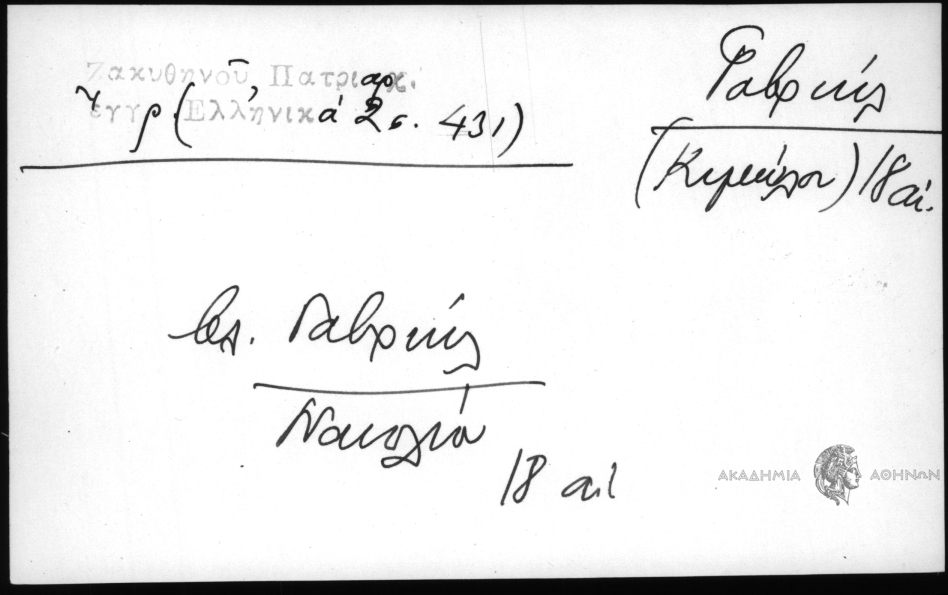 Ζακυθηνοῦ, Πατριαρχ.
ἔγγρ (Ἑλληνικά 2 σ. 431)
Γαβριήλ
(Κιμώλου) 18 αἰ.
βλ. Γαβριήλ
18 αἰ
ΑΚΑΔΗΜΙΑ ΑΘΗΝΩΝ